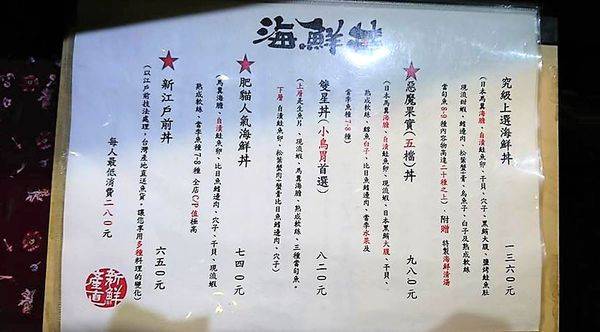 海鮮丼
究級上選海鮮丼 一三六〇元
(日本馬糞海膽、自漬鮭魚卵、干貝、穴子、日本黑鮪大腹、鹽烤鮭魚肚
現流甜蝦、鰭邊肉、松葉蟹膏、烏魚子、白子及熟成軟絲
當旬魚8-9種內容物高達二十種之上) 附贈 特製海鮮清湯
★
惡魔果實(五檔)丼 九八〇元
(日本馬糞海膽、自漬鮭魚卵、現流蝦、日本黑鮪大腹、干貝、
熟成軟絲、鱈白子、比目魚鰭邊肉、當季水果及
當季魚種7-8種)
雙星丼(小鳥胃首選) 八二〇元
(上層是生魚片、現流蝦、馬糞海膽、熟成軟絲、三種當旬魚。
下層自漬鮭魚卵、松葉蟹肉、蟹膏比目魚鰭邊肉、穴子)
★
肥貓人氣海鮮丼 七四〇元
(馬糞海膽、自漬鮭魚卵、比目魚鰭邊肉、穴子、干貝、現流蝦
熟成軟絲、當季魚種7-8種 全店CP值極高
★
新江戶前丼 六五〇元
(以江戶前技法處理，台灣產地直送魚貨。讓您享用多種料理的變化)
每人最低消費二八〇元
新鮮
產直